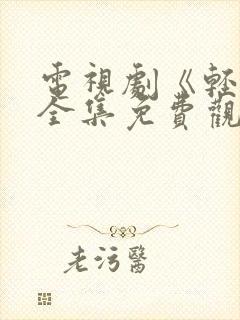 電視劇《輕
全集免費觀
老污醫